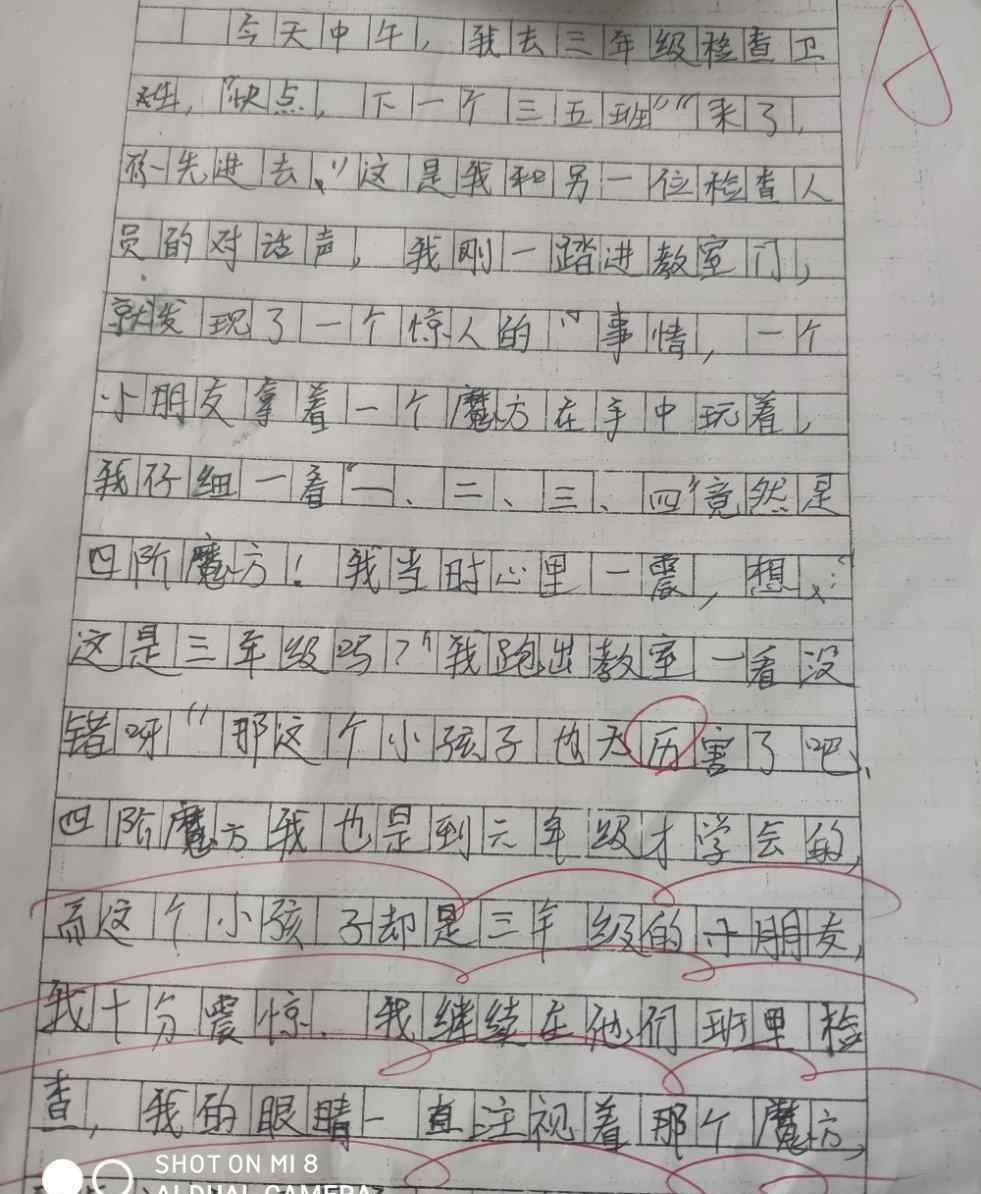 今天中午，我去三年级检查卫
生，“快点，下一个三五班”“来了，
你先进去、”这是我和另一位检查人
员的对话声，我刚一踏进教室门，
就发现了一个惊人的“事情，一个
小朋友拿着一个魔方在手中玩着，
我仔细一看“一、二、三、四”竟然是
四阶魔方！我当时心里一震，想：“
这是三年级吗？“我跑出教室一看没
错呀“那这个小孩子也太历害了吧、
四阶魔方我也是到六年级才学会的，
而这个小孩子却是三年级的小朋友，
我十分震惊、我继续在他们班里检
查，我的眼睛一直注视着那个魔方，
SHOT ON MI 8
AI DUAL CAMERA